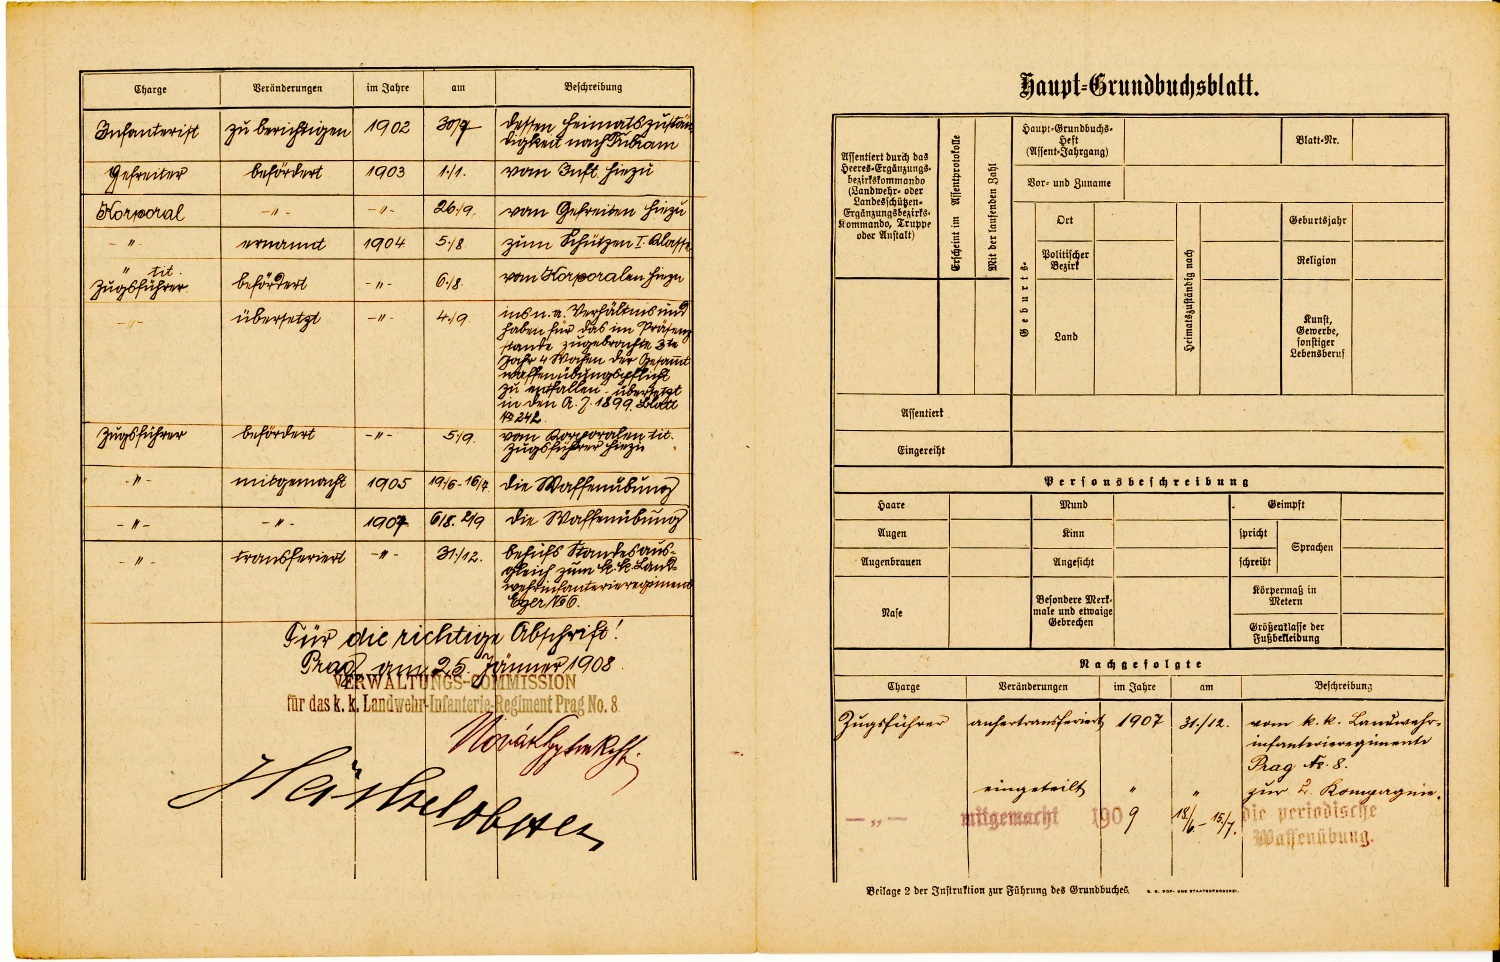 Charge Veränderungen im Jahre am Beschreibung
Infanterist zu berichtigen 1902 30/7 dessen Heimatszustän
digkeit nach
Gefreiter befördert 1903 1./1. vom Inft. hiezu
Korporal -"- -"- 26./9. vom Gefreiten hiezu
-"- ernannt 1904 5./8. zum Schützen I. Klasse
" tit.
Zugsführer befördert -"- 6./8. vom Korporalen hiezu
-"- übersetzt -"- 4./9. ins n. a. Verhältnis und
haben für das im Präsenz
stande zugebrachte 3te
Jahr 4 Wochen der Gesamt
waffenübungspflicht
zu entfallen - übersetzt
in den A. J. 1899. Blatt
No 242.
Zugsführer befördert -"- 5./9. vom Korporalen tit.
Zugsführer hiezu
-"- mitgemacht 1905 19/6-16/7. die Waffenübung
-"- -"- 1907 6/8. 2/9 die Waffenübung
-"- transferiert -"- 31./12. behufs Standesaus-
gleich zum k. k. Land-
wehrinfanterieregiment
Eger No 6.
Für die richtige Abschrift!
Prag am 25. Jänner 1908.
VERWALTUNGS-COMMISSION
für das k. k. Landwehr-Infanterie-Regiment Prag No. 8
Haupt-Grundbuchsblatt.
Assentiert durch das
Heeres-Ergänzungs-
bezirkskommando
(Landwehr- oder
Landesschützen-
Ergänzungsbezirks-
Kommando, Truppe
oder Anstalt)
Erscheint im Assentprotokolle
Mit der laufenden Zahl
Haupt-Grundbuchs-
Heft
(Assent-Jahrgang)
Blatt-Nr.
Vor- und Zuname
Geburts-
Ort
Politischer
Bezirk
Land
Heimatszuständig nach
Geburtsjahr
Religion
Kunst,
Gewerbe,
sonstiger
Lebensberuf
Assentiert
Eingereiht
Personsbeschreibung
Haare Mund Geimpft
Augen Kinn spricht Sprachen
Augenbrauen Angesicht schreibt
Nase
Besondere Merk-
male und etwaige
Gebrechen
Körpermaß in
Metern
Größenklasse der
Fußbekleidung
Nachgefolgte
Charge Veränderungen im Jahre am Beschreibung
Zugsführer anhertransferiert 1907 31./12. vom k. k. Landwehr-
infanterieregimente
Prag No. 8.
eingeteilt " " zur 2. Kompagnie.
—„— mitgemacht 1909 18/6 - 15/7. die periodische
Waffenübung.
Beilage 2 der Instruktion zur Führung des Grundbuches. K. K. HOF- UND STAATSDRUCKEREI.